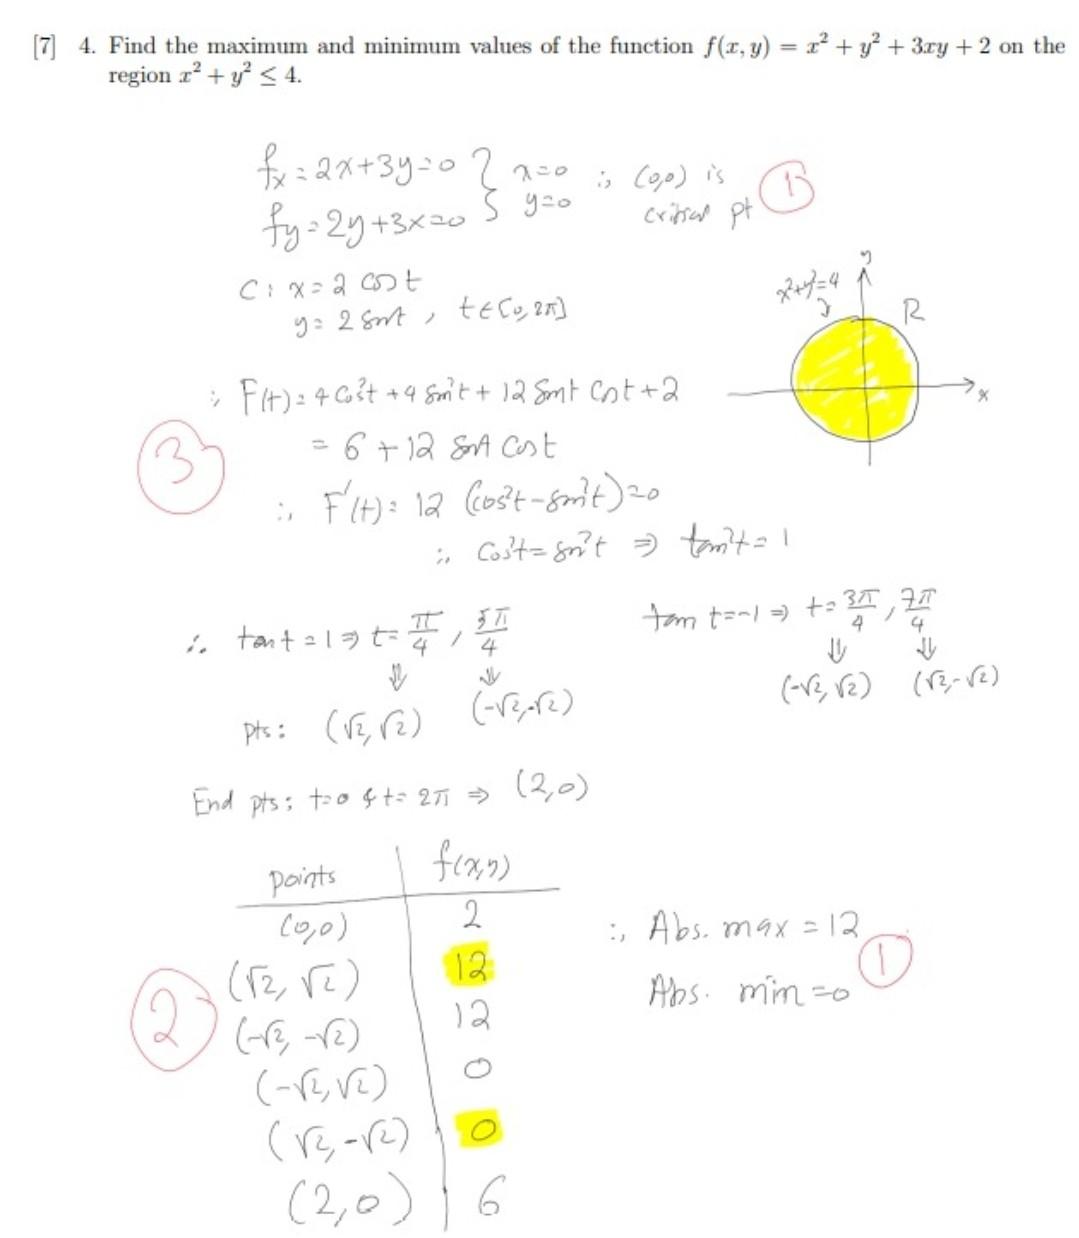 [7] 4. Find the maximum and minimum values of the function f(x, y) = x² + y² + 3xy + 2 on the
region x² + y² ≤ 4.
fx = 2x+3y=0 } x=0 ∴ (0,0) is ①
fy = 2y+3x=0 } y=0 critical pt
C: x = 2 cos t
y = 2 sint , t∈[0, 2π]
x²+y²=4 y R
x
∴ F(t) = 4 cos²t + 4 sin²t + 12 sint cost + 2
③ = 6 + 12 sint cost
∴ F'(t) = 12 (cos²t - sin²t) = 0
∴ cos²t = sin²t ⇒ tan²t = 1
∴ tan t = 1 ⇒ t = π/4 , 5π/4 tan t = -1 ⇒ t = 3π/4 , 7π/4
⇓ ⇓ ⇓ ⇓
pts: (√2, √2) (-√2, -√2) (-√2, √2) (√2, -√2)
End pts: t=0 & t= 2π ⇒ (2,0)
points f(x,y)
(0,0) 2 ∴ Abs. max = 12
(√2, √2) 12 ①
② (-√2, -√2) 12 Abs. min = 0
(-√2, √2) 0
(√2, -√2) 0
(2,0) 6